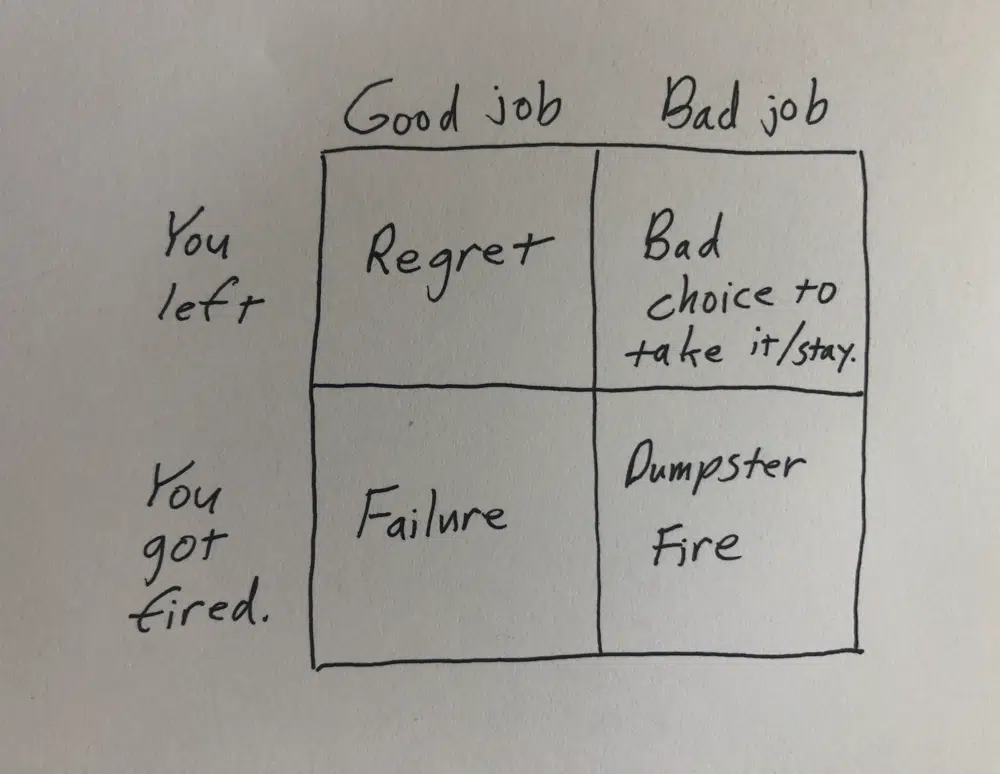 Good job Bad job
You
left
Regret
Bad
choice to
take it/stay.
You
got
fired.
Failure
Dumpster
Fire